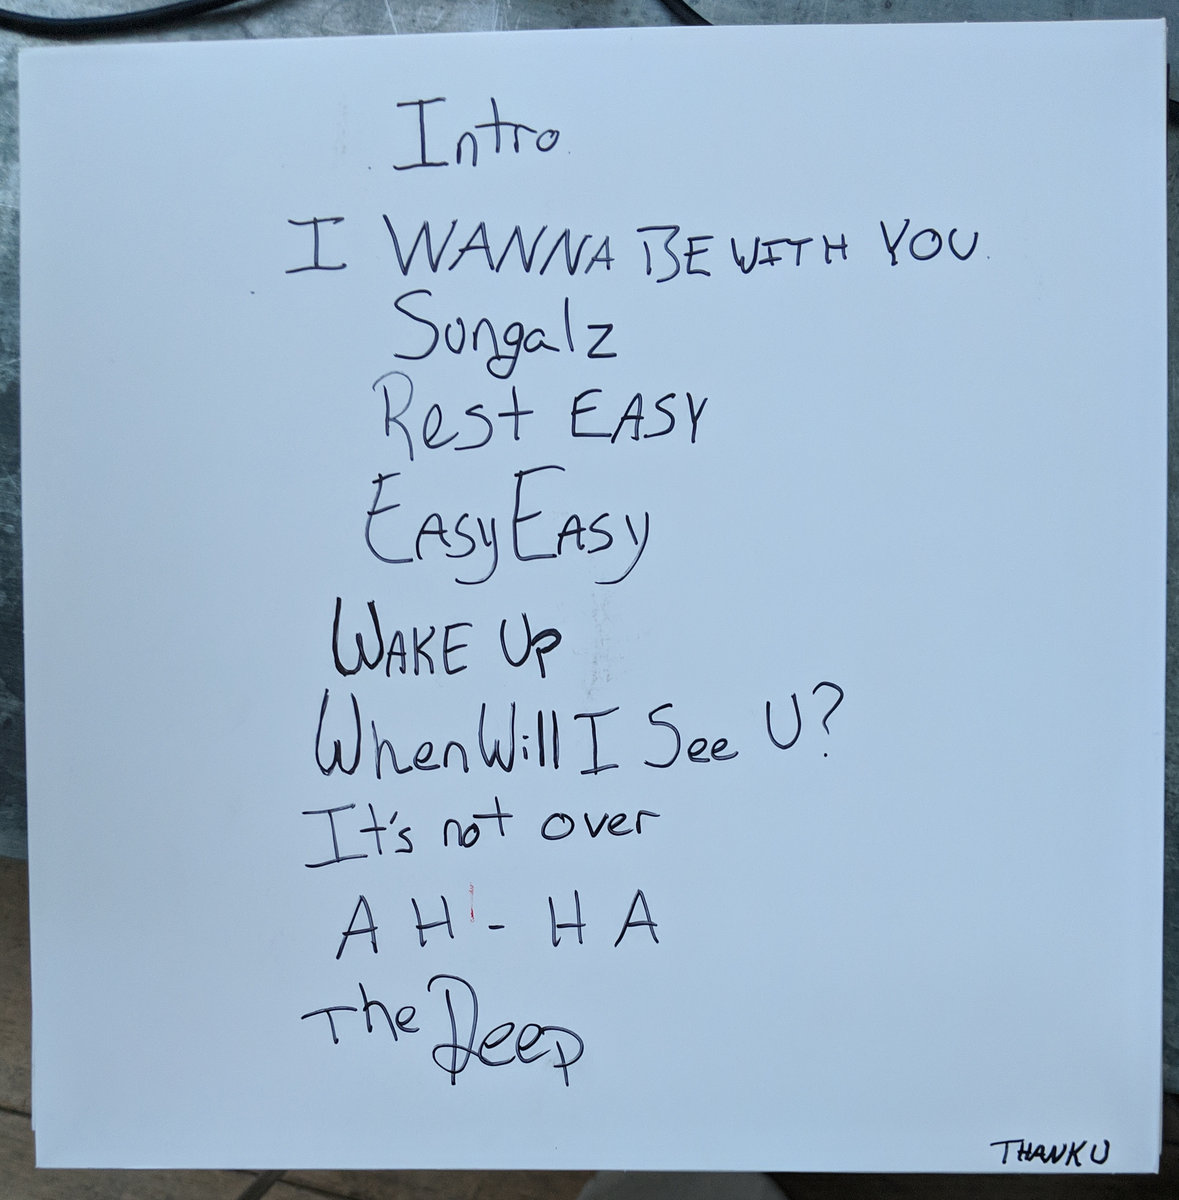 Intro
I WANNA BE WITH YOU
Sungalz
Rest EASY
EASY EASY
WAKE UP
When Will I See U?
It's not over
AH-HA
The Deep
THANK U